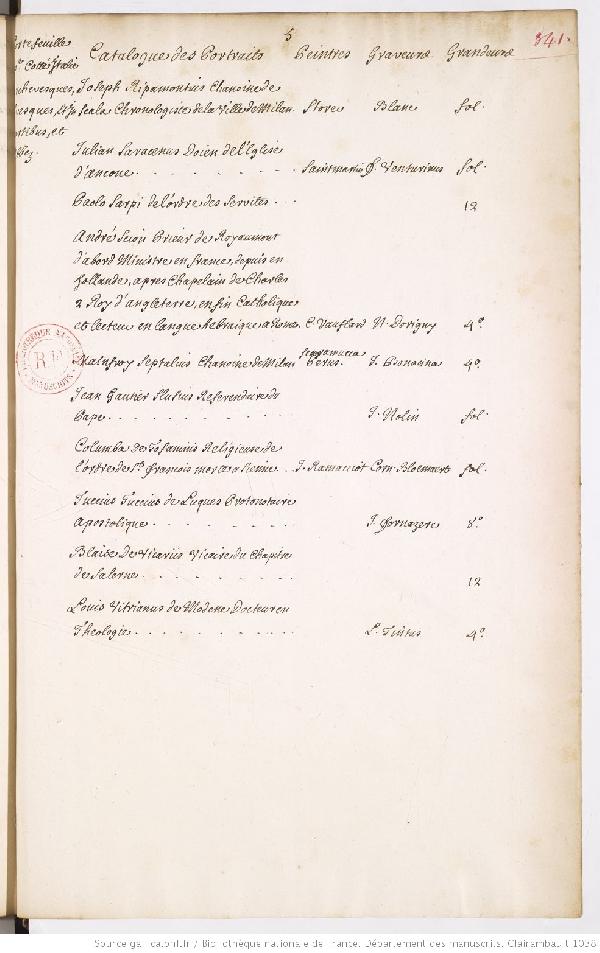 5
341.
Portefeuille Catalogue des Portraits Peintres Graveurs Grandeurs
Cotté Italie
Joseph Ripamontius Chanoine de
Scala Chronologiste de la Ville de Milan Store Blanc fol.
Julian Saracenus Doien de l'Eglise
d'ancone . . . . . . . . Saintmartin P. Venturinus fol.
Paolo Sarpi de l'ordre des Servites . . 12
André Scion Prieur de Royaumont
d'abord Ministre en france, depuis en
hollande, apres Chapelain de Charles
2 Roy d'angleterre, enfin Catholique
et lecteur en langue hebraique a Rome C. Vauflord N. Dorigny 4°.
Mainfroy Septalius Chanoine de Milan J. Bonacina 4°.
Jean Gautier Slusius Referendaire du
Pape . . . . . . . . J. Nolin fol.
Columba de Tofaninis Religieuse de
l'ordre de St. François morte a Sienne . J. Ramaciot Corn. Bloemart fol.
Tuccius Tuccius de Luques Protonotaire
Apostolique . . . . . . . J. Fornazere 8°.
Blaise De Vicariis Vicaire du Chapitre
de Salerne . . . . . . . 12
Louis Vitrianus de Modene Docteur en
Theologie . . . . . . . . L. Tintus 4°.
Source gallica.bnf.fr / Bibliothèque nationale de France. Département des manuscrits. Clairambault 1038